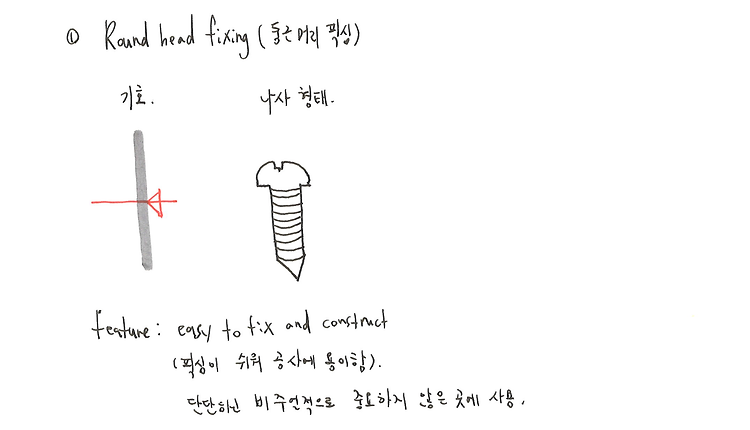 ① Round head fixing (둥근머리 픽싱)
기호.
나사 형태.
feature: easy to fix and construct
(픽싱이 쉬워 공사에 용이함).
단단하고 비주얼적으로 중요하지 않은 곳에 사용.